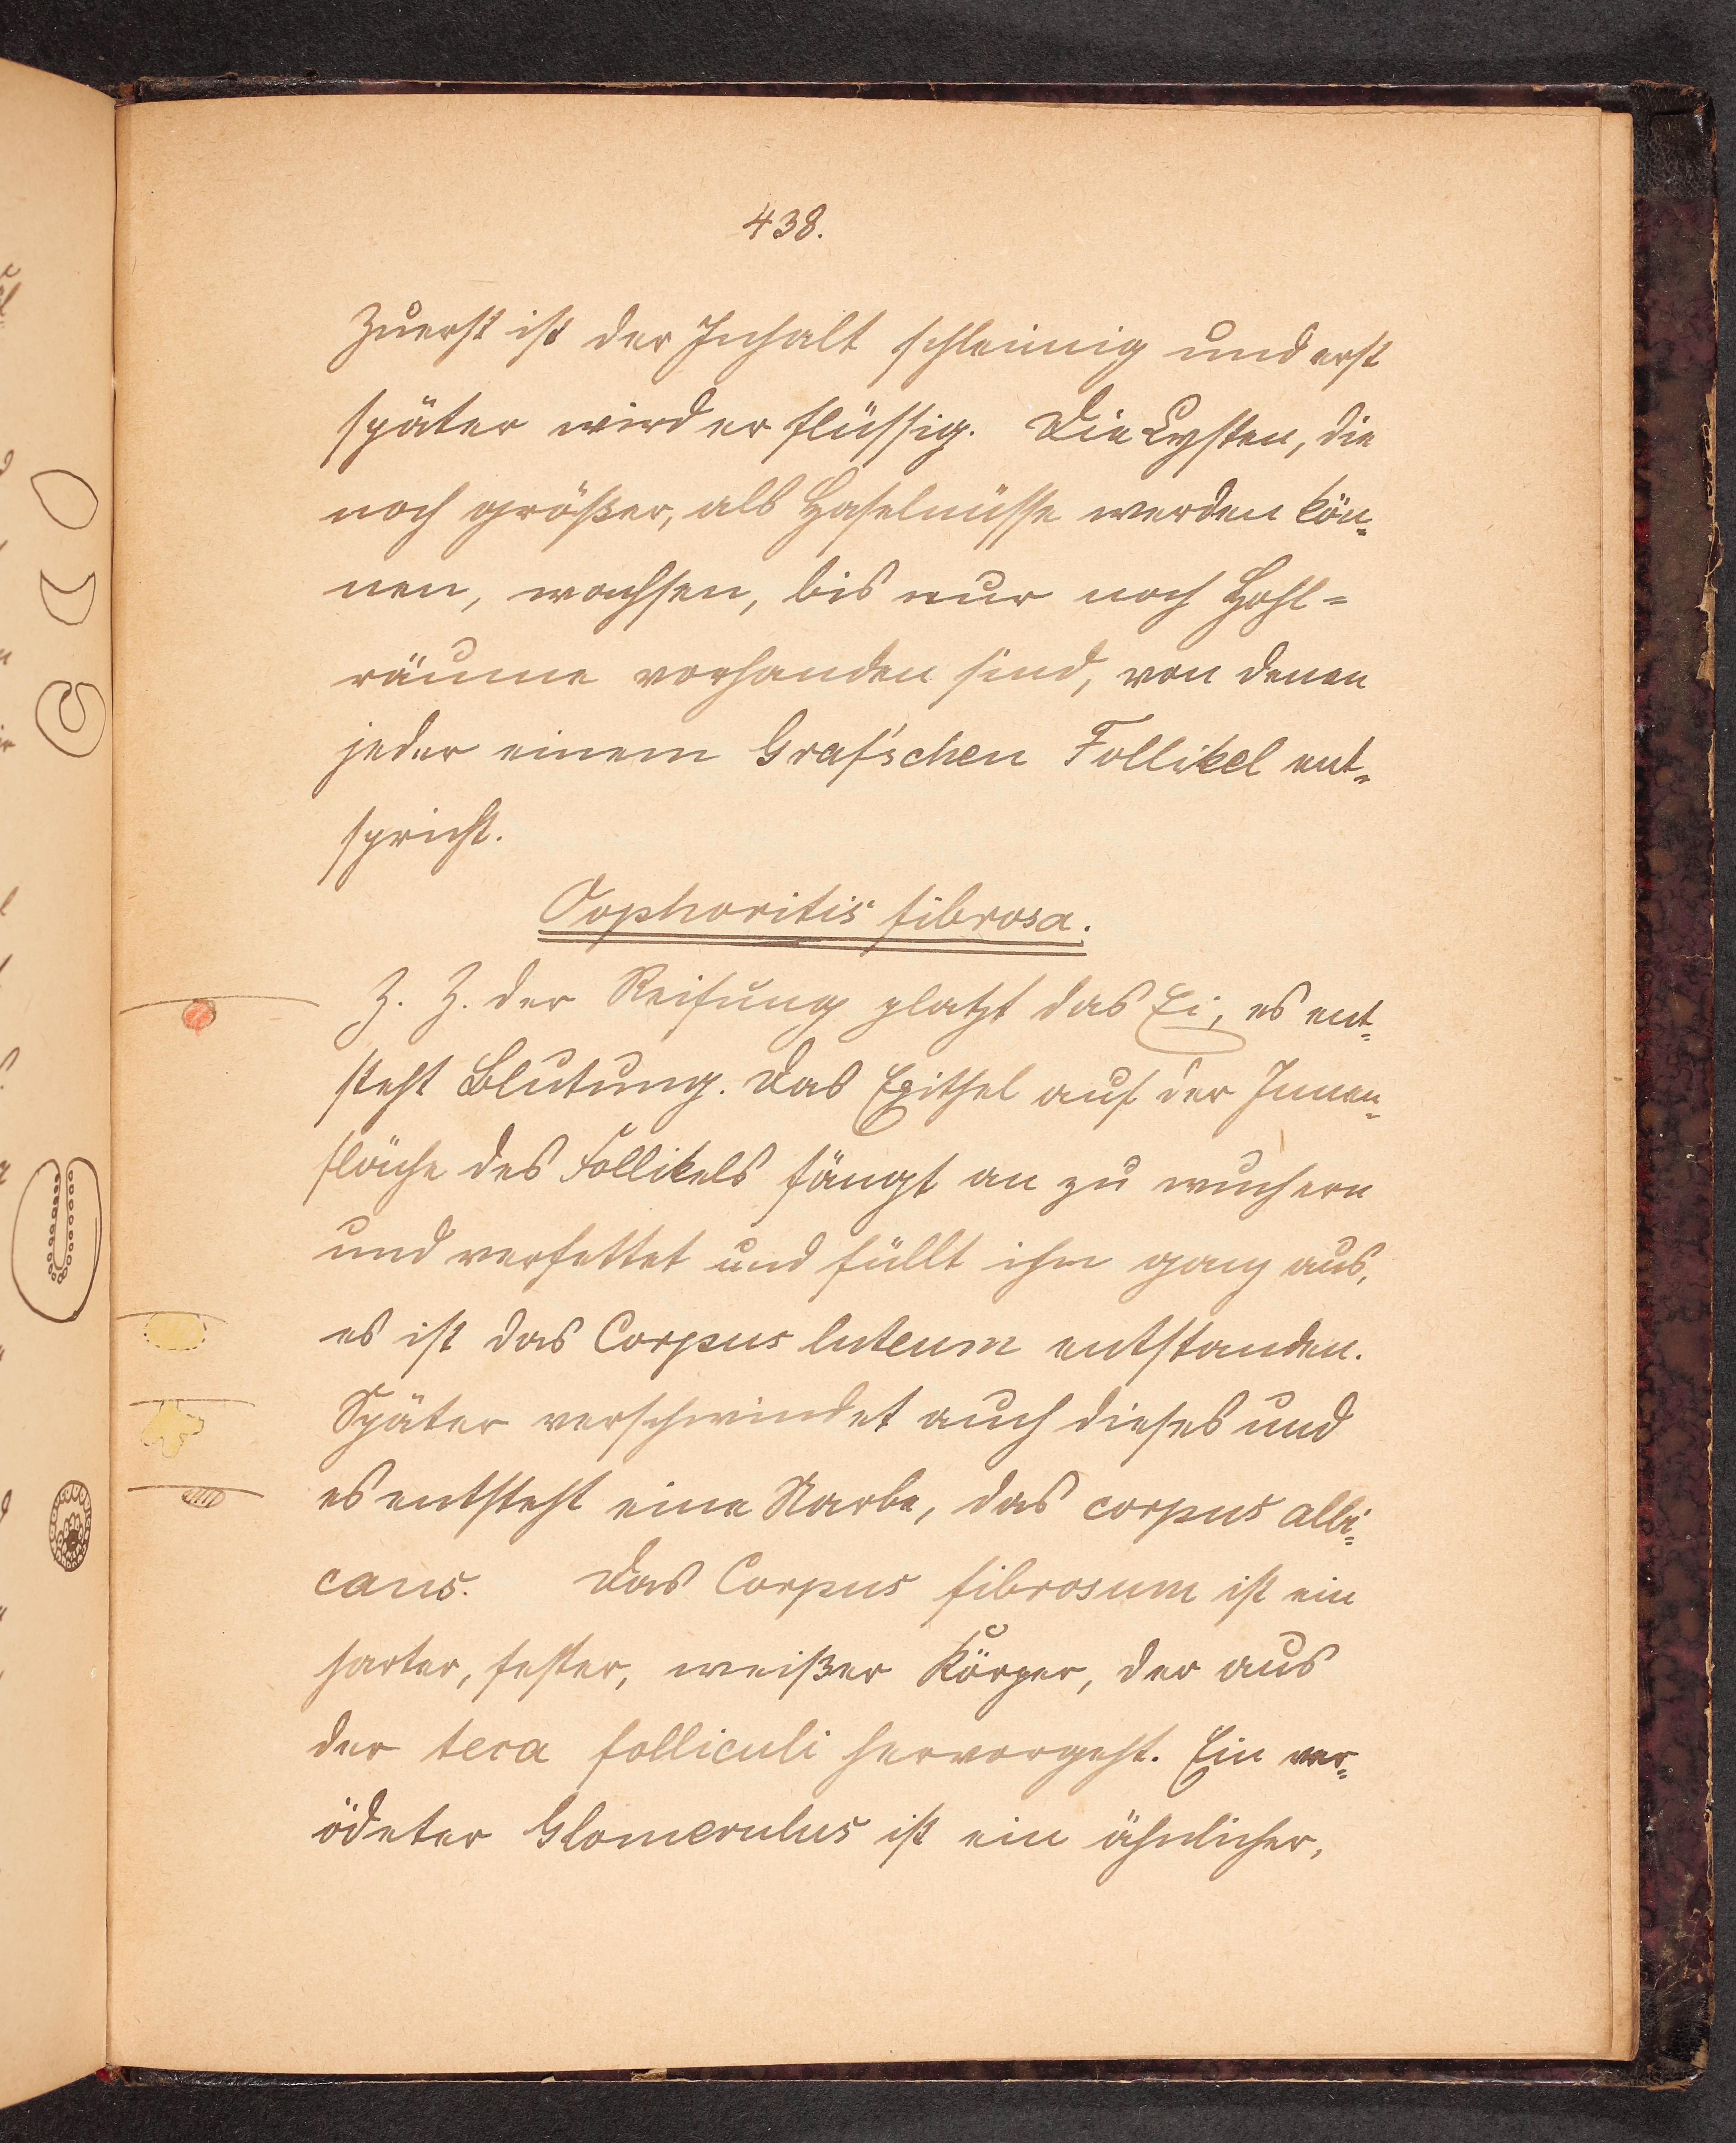 438.
Zuerst ist der Inhalt schleimig und erst
später wird er flüssig. Die Cysten, die
noch größer, als Haselnüsse werden kön-
nen, wachsen, bis nur noch Hohl-
räume vorhanden sind, von denen
jeder einem Graf'schen Follikel ent-
spricht.
Oophoritis fibrosa.
Z. Z. der Reifung platzt das Ei, es ent-
steht Blutung. Das Epithel auf der Innen-
fläche des Follikels fängt an zu wuchern
und verfettet und füllt ihn ganz aus,
es ist das Corpus luteum entstanden.
Später verschwindet auch dieses und
es entsteht eine Narbe, das corpus albi-
cans. Das Corpus fibrosum ist ein
harter, fester, weißer Körper, der aus
der teca folliculi hervorgeht. Ein ver-
ödeter Glomerulus ist ein ähnlicher,